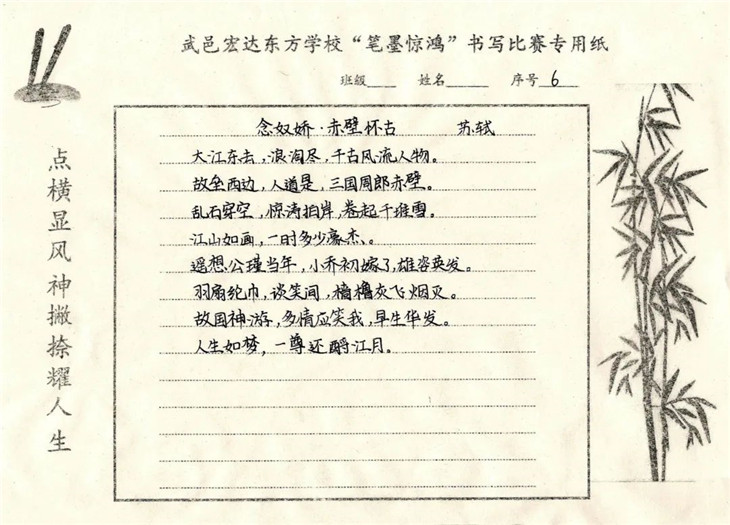 武邑宏达东方学校“笔墨惊鸿”书写比赛专用纸
班级____ 姓名____ 序号 6
点横显风神撇捺耀人生
念奴娇·赤壁怀古 苏轼
大江东去,浪淘尽,千古风流人物。
故垒西边,人道是,三国周郎赤壁。
乱石穿空,惊涛拍岸,卷起千堆雪。
江山如画,一时多少豪杰。
遥想公瑾当年,小乔初嫁了,雄姿英发。
羽扇纶巾,谈笑间,樯橹灰飞烟灭。
故国神游,多情应笑我,早生华发。
人生如梦,一尊还酹江月。